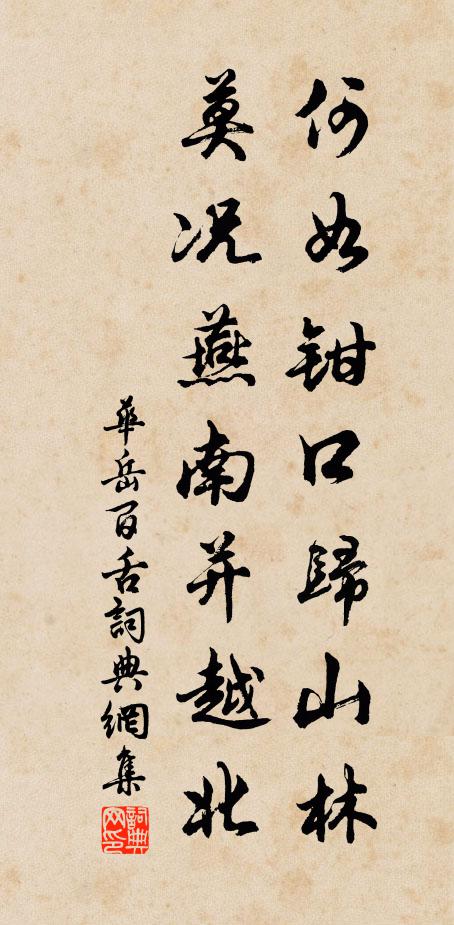 何如鉗口歸山林
莫况燕南并越北
華岳百舌詞典網集
詞典网印